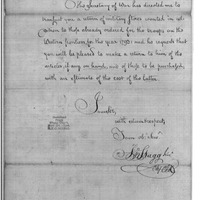 The Secretary of War has directed me to
transmit you a return of military stores wanted in ad-
dition to those already ordered for the troops on the
Western frontiers for the year 1793; and he requests that
you will be pleased to make a return to him of the
articles, if any on hand, and of those to be purchased,
with an estimate of the cost of the latter.
I am Sir,
with esteem
Your ob. Serv.